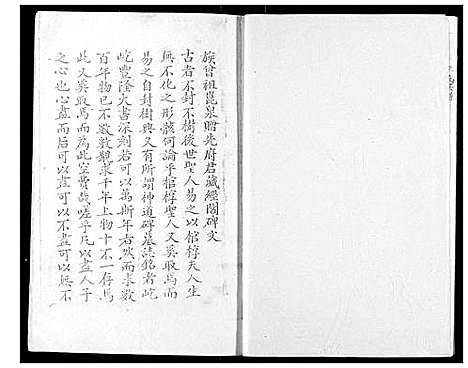 族曾祖崑泉贈先府君藏經閣碑文
古者不封不樹後世聖人易之以棺椁夫人生
無不化之形骸何論乎棺椁聖人又奚取焉而
易之自封樹興又有所謂神道碑墓誌銘者屹
屹豐隆大書深刻若可以為斯年者然而求數
百年物已不數數覯求千年上物十不一存焉
此又奚取焉為此空費哉嗟乎凡以盡人子
之心也心盡而后可以盡可以不盡可以無不